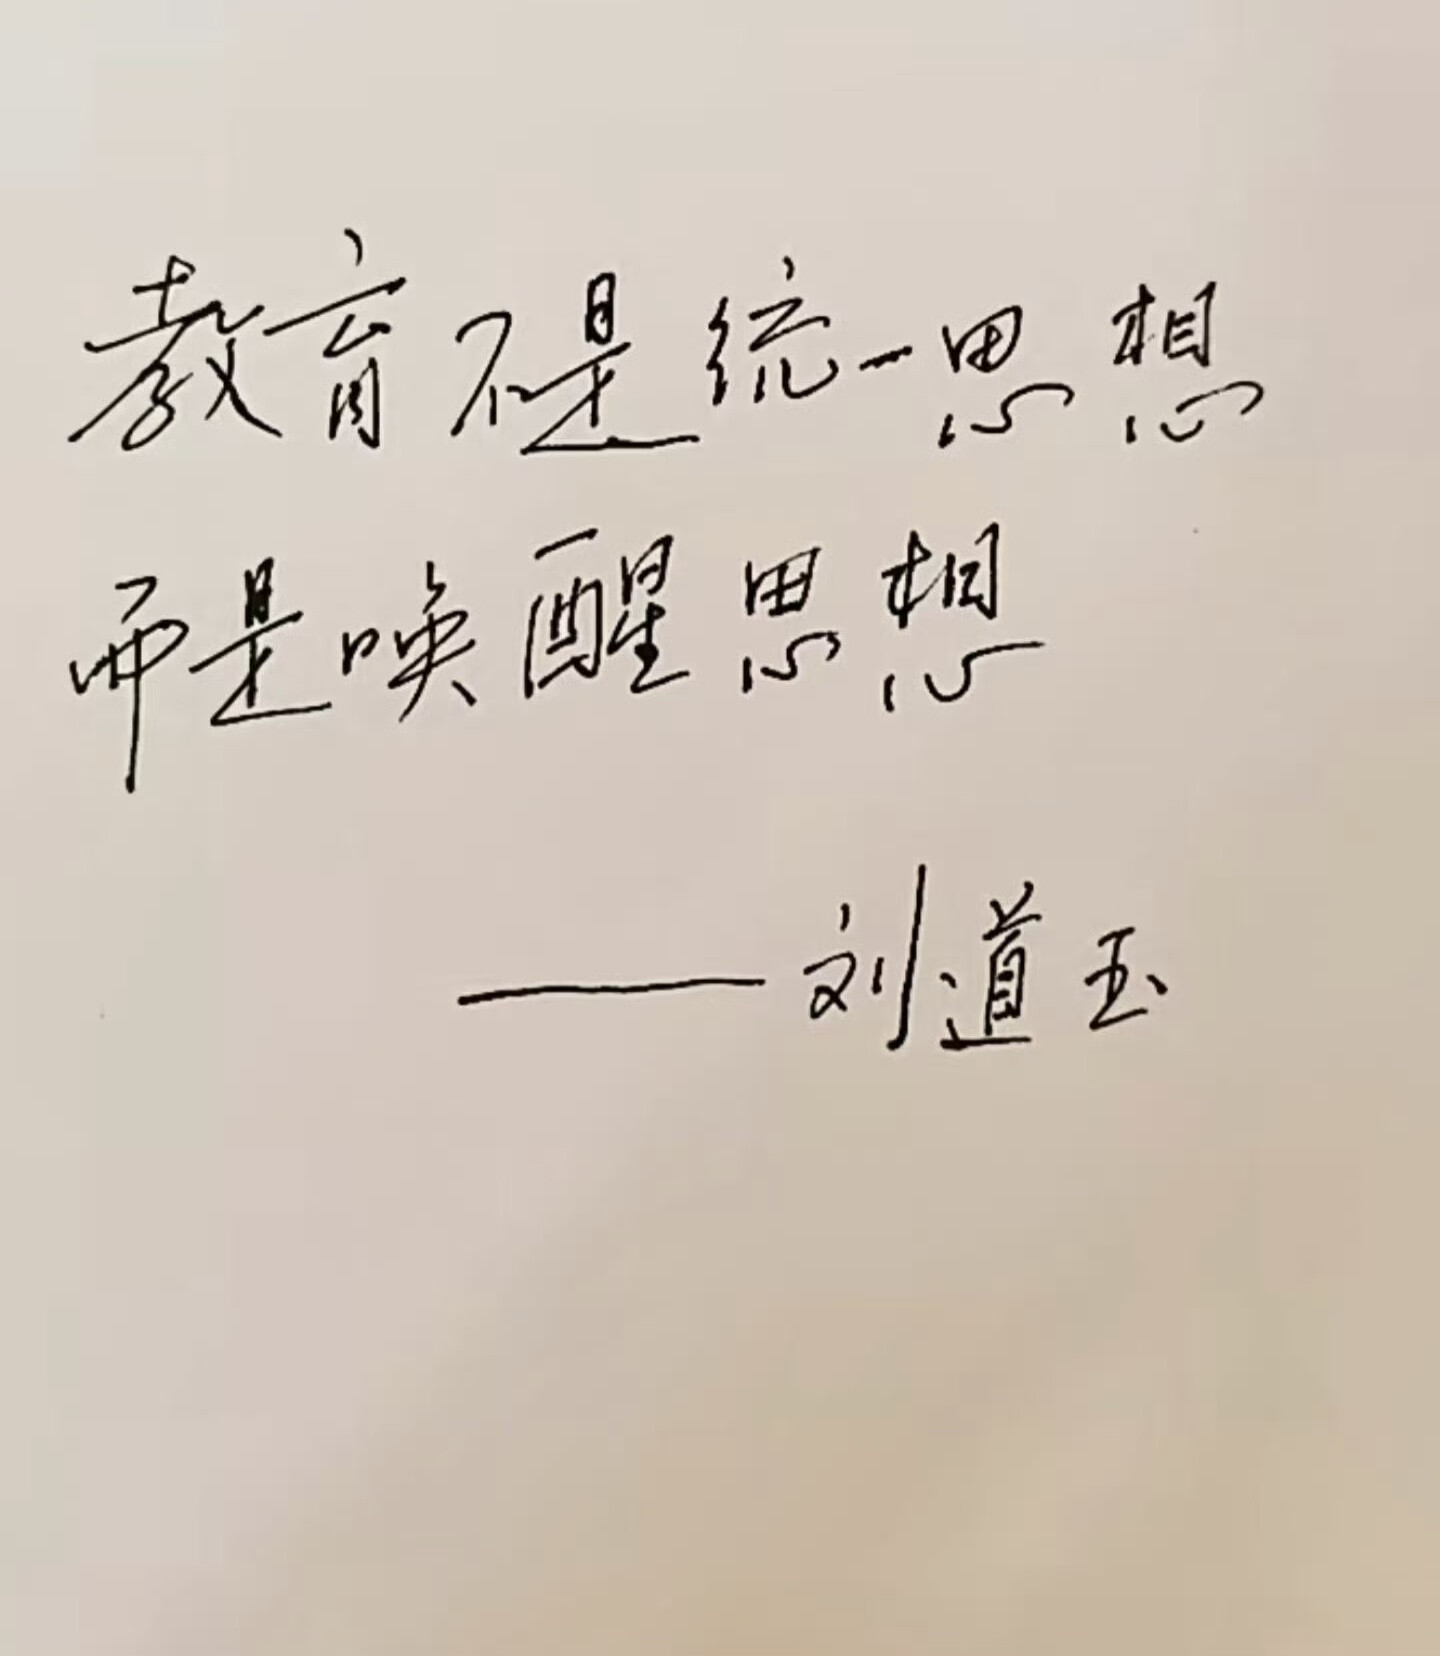 教育不是统一思想
而是唤醒思想
——刘道玉